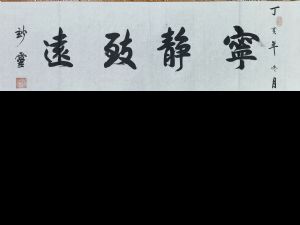 丁亥年冬月
寧靜致遠
妙靈